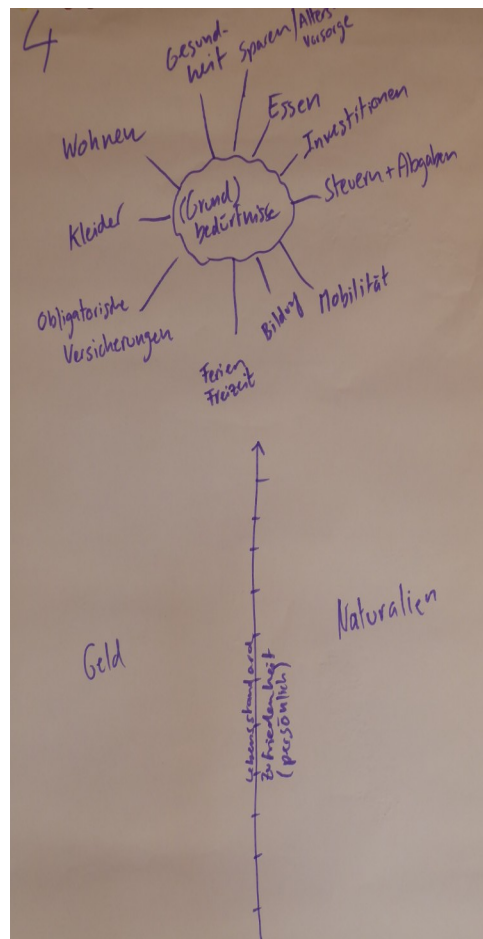 4
Gesund-
heit
Sparen/Alters
vorsorge
Essen
Investitionen
Wohnen
Steuern + Abgaben
Kleider
(Grund)
bedürfnisse
Obligatorische
Versicherungen
Mobilität
Bildung
Ferien
Freizeit
Naturalien
Geld
Lebensstandard
Zufriedenheit
(persönlich)